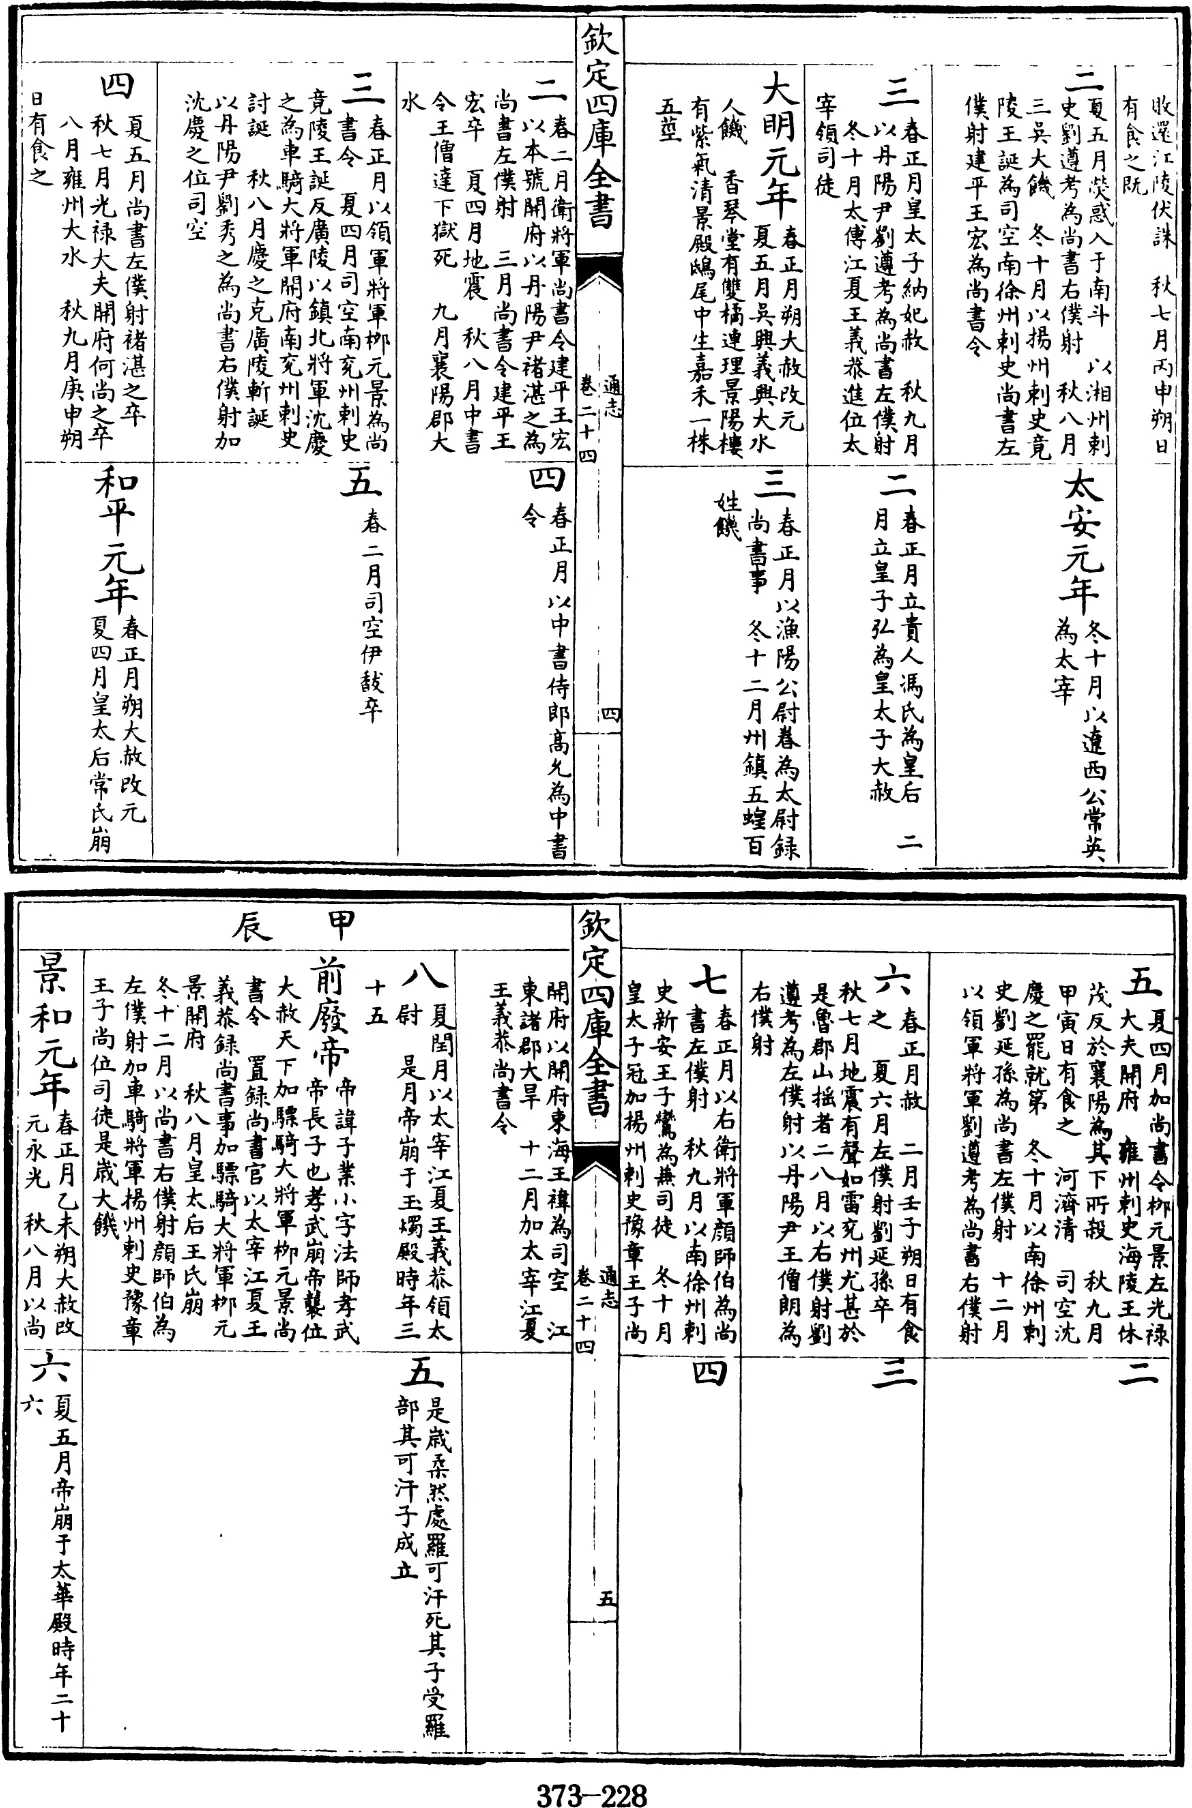 敗還江陵伏誅　秋七月丙申朔日
有食之既
二
夏五月熒惑入于南斗　以湘州刺
史劉遵考為尚書右僕射　秋八月
三吳大饑　冬十月以揚州刺史竟
陵王誕為司空南徐州刺史尚書左
僕射建平王宏為尚書令
太安元年
冬十月以遼西公常英
為太宰
三
春正月皇太子納妃赦　秋九月
以丹陽尹劉遵考為尚書左僕射
冬十月太傅江夏王義恭進位太
宰領司徒
二
春正月立貴人馮氏為皇后　二
月立皇子弘為皇太子大赦
大明元年
春正月朔大赦改元
夏五月吳興義興大水
人饑　香琴堂有雙橘連理景陽樓
有紫氣清景殿鴟尾中生嘉禾一株
五莖
三
春正月以漁陽公尉眷為太尉録
尚書事　冬十二月州鎮五蝗百
姓饑
欽定四庫全書
通志
卷二十四
四
二
春二月衛將軍尚書令建平王宏
以本號開府以丹陽尹褚湛之為
尚書左僕射　三月尚書令建平王
宏卒　夏四月地震　秋八月中書
令王僧達下獄死　九月襄陽郡大
水
四
春正月以中書侍郎高允為中書
令
三
春正月以領軍將軍栁元景為尚
書令　夏四月司空南兖州刺史
竟陵王誕反廣陵以鎮北將軍沈慶
之為車騎大將軍開府南兖州刺史
討誕　秋八月慶之克廣陵斬誕
以丹陽尹劉秀之為尚書右僕射加
沈慶之位司空
五
春二月司空伊馛卒
四
夏五月尚書左僕射褚湛之卒
秋七月光禄大夫開府何尚之卒
八月雍州大水　秋九月庚申朔
日有食之
和平元年
春正月朔大赦改元
夏四月皇太后常氏崩
五
夏四月加尚書令栁元景左光禄
大夫開府　雍州刺史海陵王休
茂反於襄陽為其下所殺　秋九月
甲寅日有食之　河濟清　司空沈
慶之罷就第　冬十月以南徐州刺
史劉延孫為尚書左僕射　十二月
以領軍將軍劉遵考為尚書右僕射
二
六
春正月赦　二月壬子朔日有食
之　夏六月左僕射劉延孫卒
秋七月地震有聲如雷兖州尤甚於
是魯郡山摇者二八月以右僕射劉
遵考為左僕射以丹陽尹王僧朗為
右僕射
三
七
春正月以右衛將軍顔師伯為尚
書左僕射　秋九月以南徐州刺
史新安王子鸞為兼司徒　冬十月
皇太子冠加揚州刺史豫章王子尚
四
欽定四庫全書
通志
卷二十四
五
開府以開府東海王禕為司空　江
東諸郡大旱　十二月加太宰江夏
王義恭尚書令
甲辰
八
夏閏月以太宰江夏王義恭領太
尉　是月帝崩于玉燭殿時年三
十五
前廢帝
帝諱子業小字法師孝武
帝長子也孝武崩帝襲位
大赦天下加驃騎大將軍栁元景尚
書令　置録尚書官以太宰江夏王
義恭録尚書事加驃騎大將軍栁元
景開府　秋八月皇太后王氏崩
冬十二月以尚書右僕射顔師伯為
左僕射加車騎將軍揚州刺史豫章
王子尚位司徒是歲大饑
五
是歲柔然處羅可汗死其子受羅
部其可汗子成立
景和元年
春正月乙未朔大赦改
元永光　秋八月以尚
六
夏五月帝崩于太華殿時年二十
六
373-228